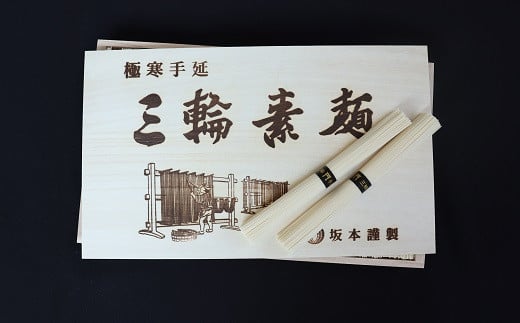 極寒手延
三輪素麺
坂本謹製